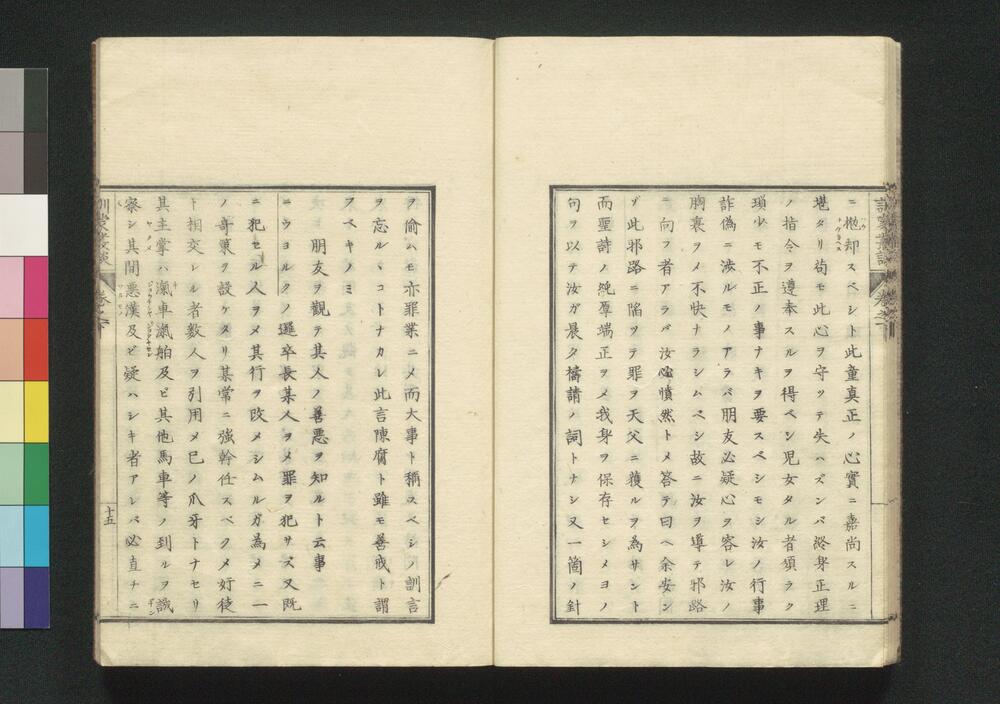 ニ抛却スベシト此童真正ノ心實ニ嘉尚スルニ
堪タリ苟モ此心ヲ守ツテ失ハズンバ終身正理
ノ指令ヲ遵奉スルヲ得ベシ児女タル者須ラク
瑣少モ不正ノ事ナキヲ要スベシモシ汝ノ行事
詐偽ニ渉ルモノアラバ朋友必疑心ヲ容レ汝ノ
胸裏ヲメ不快ナラシムベシ故ニ汝ヲ導テ邪路
ニ向フ者アラバ汝必憤然トメ答テ曰ヘ余安ン
ゾ此邪路ニ陥ツテ罪ヲ天父ニ獲ルヲ為サント
而聖詩ノ純厚端正ヲメ我身ヲ保存セシメヨノ
句ヲ以テ汝ガ晨夕禱請ノ詞トナシ又一箇ノ針
ヲ偷ムモ亦罪業ニメ而大事ト稱スベシノ訓言
ヲ忘ルヽコトナカレ此言陳腐ト雖モ善戒ト謂
フベキノミ
朋友ヲ觀テ其人ノ善悪ヲ知ルト云事
ニウヨルクノ邏卒長某人ヲメ罪ヲ犯サズ又既
ニ犯セル人ヲメ其行ヲ改メシムルガ為メニ一
ノ奇策ヲ設ケタリ某常ニ強幹任スベクメ好徒
ト相交レル者数人ヲ引用メ己ノ爪牙トナセリ
其主掌ハ滊車滊舶及ビ其他馬車等ノ到ルヲ譏
察シ其間悪漢及ビ疑ハシキ者アレバ必直チニ
十五